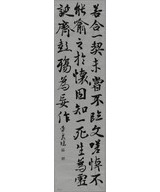 若合一契未嘗不臨文嗟悼不
能喻之於懷固知一死生為虛
誕齊彭殤為妄作